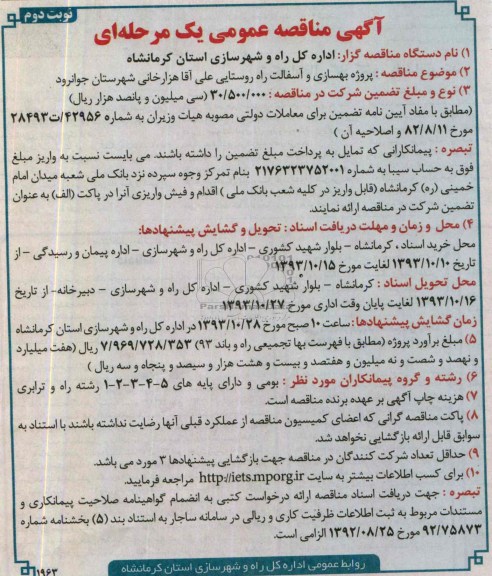 نوبت دوم
آگهی مناقصه عمومی یک مرحله‌ای
۱) نام دستگاه مناقصه گزار: اداره کل راه و شهرسازی استان کرمانشاه
۲) موضوع مناقصه : پروژه بهسازی و آسفالت راه روستایی علی آقا هزارخانی شهرستان جوانرود
۳) نوع و مبلغ تضمین شرکت در مناقصه : ۳۰/۵۰۰/۰۰۰ (سی میلیون و پانصد هزار ریال)
(مطابق با مفاد آیین نامه تضمین برای معاملات دولتی مصوبه هیات وزیران به شماره ۴۲۹۵۶/ت۲۸۴۹۳
مورخ ۸۲/۸/۱۱ و اصلاحیه آن )
تبصره : پیمانکارانی که تمایل به پرداخت مبلغ تضمین را داشته باشند. می بایست نسبت به واریز مبلغ
فوق به حساب سیبا به شماره ۲۱۷۶۳۲۳۷۵۲۰۰۱ بنام تمرکز وجوه سپرده نزد بانک ملی شعبه میدان امام
خمینی (ره) کرمانشاه (قابل واریز در کلیه شعب بانک ملی ) اقدام و فیش واریزی آنرا در پاکت (الف) به عنوان
تضمین شرکت در مناقصه ارائه نمایند.
۴) محل و زمان و مهلت دریافت اسناد : تحویل و گشایش پیشنهادها:
محل خرید اسناد ، کرمانشاه - بلوار شهید کشوری - اداره کل راه و شهرسازی - اداره پیمان و رسیدگی - از
تاریخ ۱۳۹۳/۱۰/۱۰ لغایت مورخ ۱۳۹۳/۱۰/۱۵
محل تحویل اسناد : کرمانشاه - بلوار شهید کشوری - اداره کل راه و شهرسازی - دبیرخانه- از تاریخ
۱۳۹۳/۱۰/۱۶ لغایت پایان وقت اداری مورخ ۱۳۹۳/۱۰/۲۷
زمان گشایش پیشنهادها: ساعت ۱۰ صبح مورخ ۱۳۹۳/۱۰/۲۸ در اداره کل راه و شهرسازی استان کرمانشاه
۵) مبلغ برآورد پروژه (مطابق با فهرست بها تجمیعی راه و باند ۹۳) ۷/۹۶۹/۷۲۸/۳۵۳ ریال (هفت میلیارد
و نهصد و شصت و نه میلیون و هفتصد و بیست و هشت هزار و سیصد و پنجاه و سه ریال )
۶) رشته و گروه پیمانکاران مورد نظر : بومی و دارای پایه های ۵-۴-۳-۲-۱ رشته راه و ترابری
۷) هزینه چاپ آگهی بر عهده برنده مناقصه است.
۸) پاکت مناقصه گرانی که اعضای کمیسیون مناقصه از عملکرد قبلی آنها رضایت نداشته باشند با استناد به
سوابق قابل ارائه بازگشایی نخواهد شد.
۹) حداقل تعداد شرکت کنندگان در مناقصه جهت بازگشایی پیشنهادها ۳ مورد می باشد.
۱۰) برای کسب اطلاعات بیشتر به سایت http://iets.mporg.ir مراجعه فرمایید.
تبصره : جهت دریافت اسناد مناقصه ارائه درخواست کتبی به انضمام گواهینامه صلاحیت پیمانکاری و
مستندات مربوط به ثبت اطلاعات ظرفیت کاری و ریالی در سامانه ساجار به استناد بند (۵) بخشنامه شماره
۹۲/۷۵۸۷۳ مورخ ۱۳۹۲/۰۸/۲۵ الزامی است.
روابط عمومی اداره کل راه و شهرسازی استان کرمانشاه
۱۹۶۳